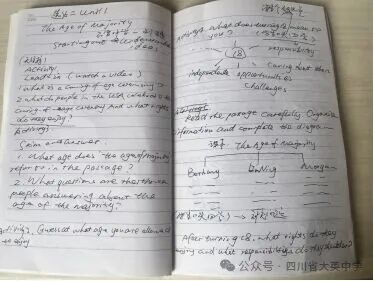 Unit 1
The Age of Majority
Starting out & Understanding ideas
Activity 1
Lead in (watch a video)
1. what is a coming of age ceremony?
2. what do people in the USA celebrate
coming of age ceremony and what rights
do they enjoy?
Activity 2
Skim and answer.
1. What age does the age of majority
refer to in the passage?
2. What questions are the three
people answering about the
age of the majority?
Activity 3 Guess at what age you are allowed
to enjoy
what does turning 18 mean to
you?
18
responsibility
Independent
opportunities
Caring about others
challenges
Read the passage carefully, organise
information and complete the diagram
The Age of Majority
Bethany
Lin Ning
Morgan
After turning 18, what rights do they
enjoy and what responsibilities do they shoulder?
公众号 · 四川省大英中学